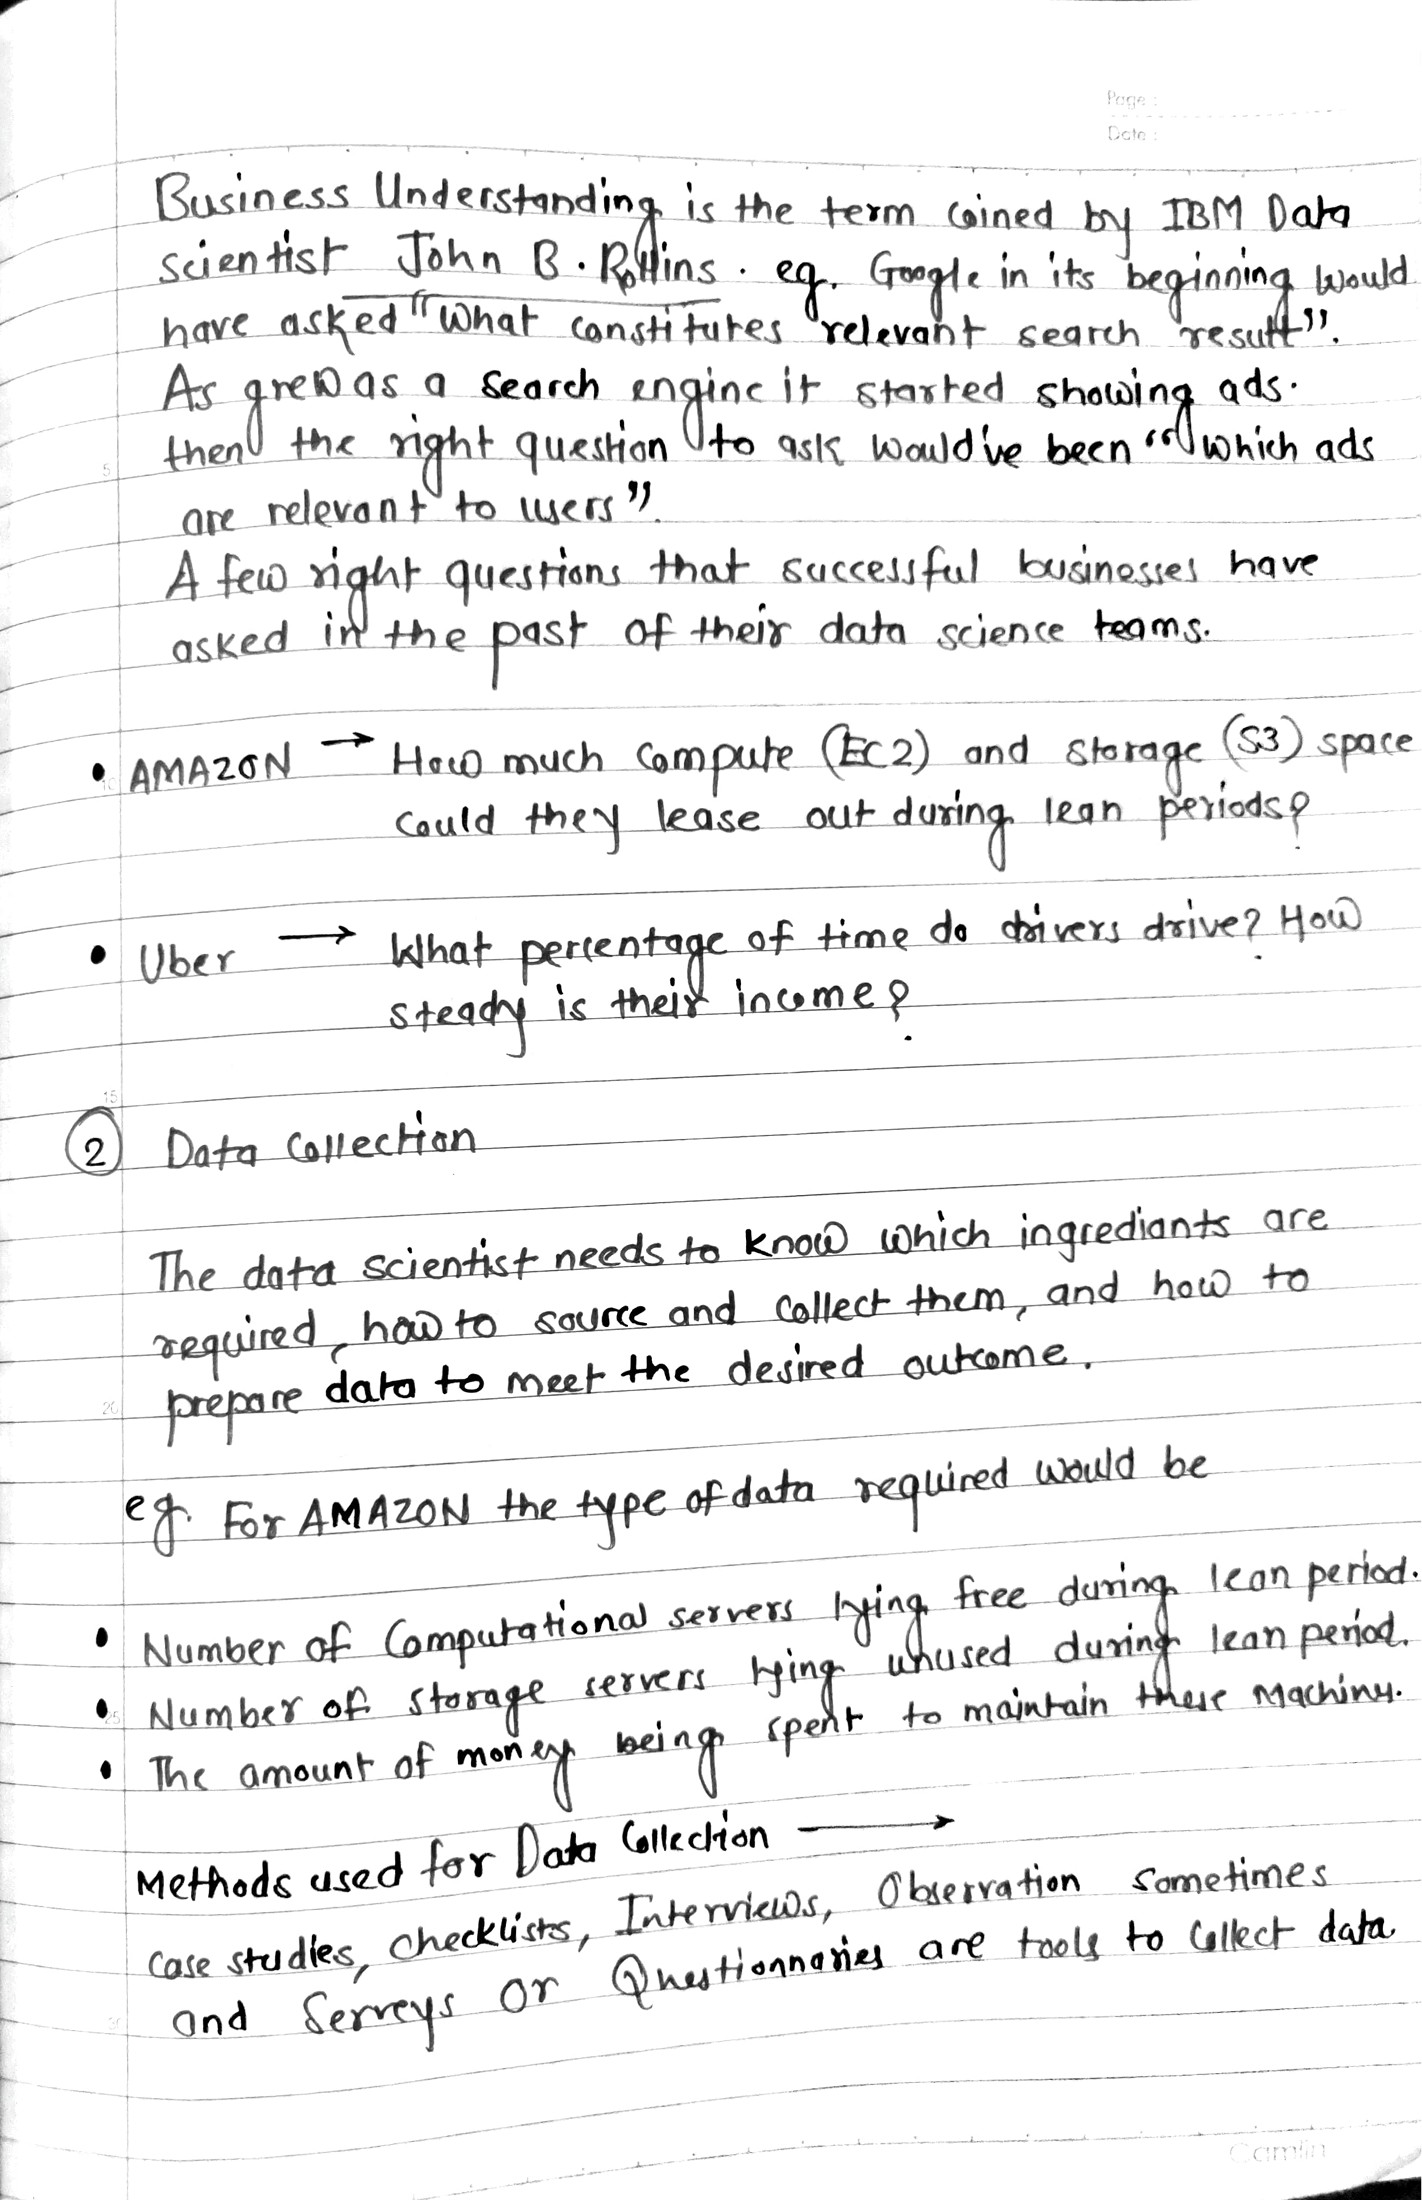 Page :
Date :
Business Understanding is the term coined by IBM Data
scientist John B. Rollins. eg. Google in its beginning would
have asked "What constitutes relevant search result".
As grew as a search engine it started showing ads.
then the right question to ask would've been "which ads
5
are relevant to users".
A few right questions that successful businesses have
asked in the past of their data science teams.
• AMAZON → How much compute (EC2) and storage (S3) space
10
could they lease out during lean periods?
• Uber → What percentage of time do drivers drive? How
steady is their income?
15
2 Data Collection
The data scientist needs to know which ingrediants are
required, how to source and collect them, and how to
prepare data to meet the desired outcome.
20
eg. For AMAZON the type of data required would be
• Number of Computational servers lying free during lean period.
• Number of storage servers lying unused during lean period.
25
• The amount of money being spent to maintain these machines.
Methods used for Data Collection →
case studies, checklists, Interviews, Observation sometimes
and Serveys or Questionnaries are tools to collect data
30
Camlin